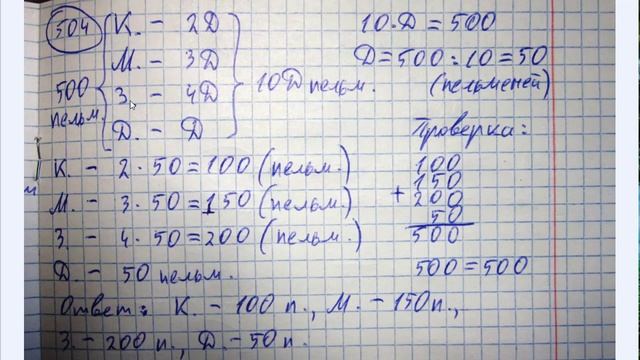 504
К. - 2Д
М. - 3Д
З. - 4Д
Д. - Д
500
пельм.
10Д пельм.
10·Д = 500
Д = 500 : 10 = 50
(пельменей)
К. - 2 · 50 = 100 (пельм.)
М. - 3 · 50 = 150 (пельм.)
З. - 4 · 50 = 200 (пельм.)
Д. - 50 пельм.
Проверка:
100
150
+ 200
50
500
500 = 500
Ответ: К. - 100 п., М. - 150 п.,
З. - 200 п., Д. - 50 п.